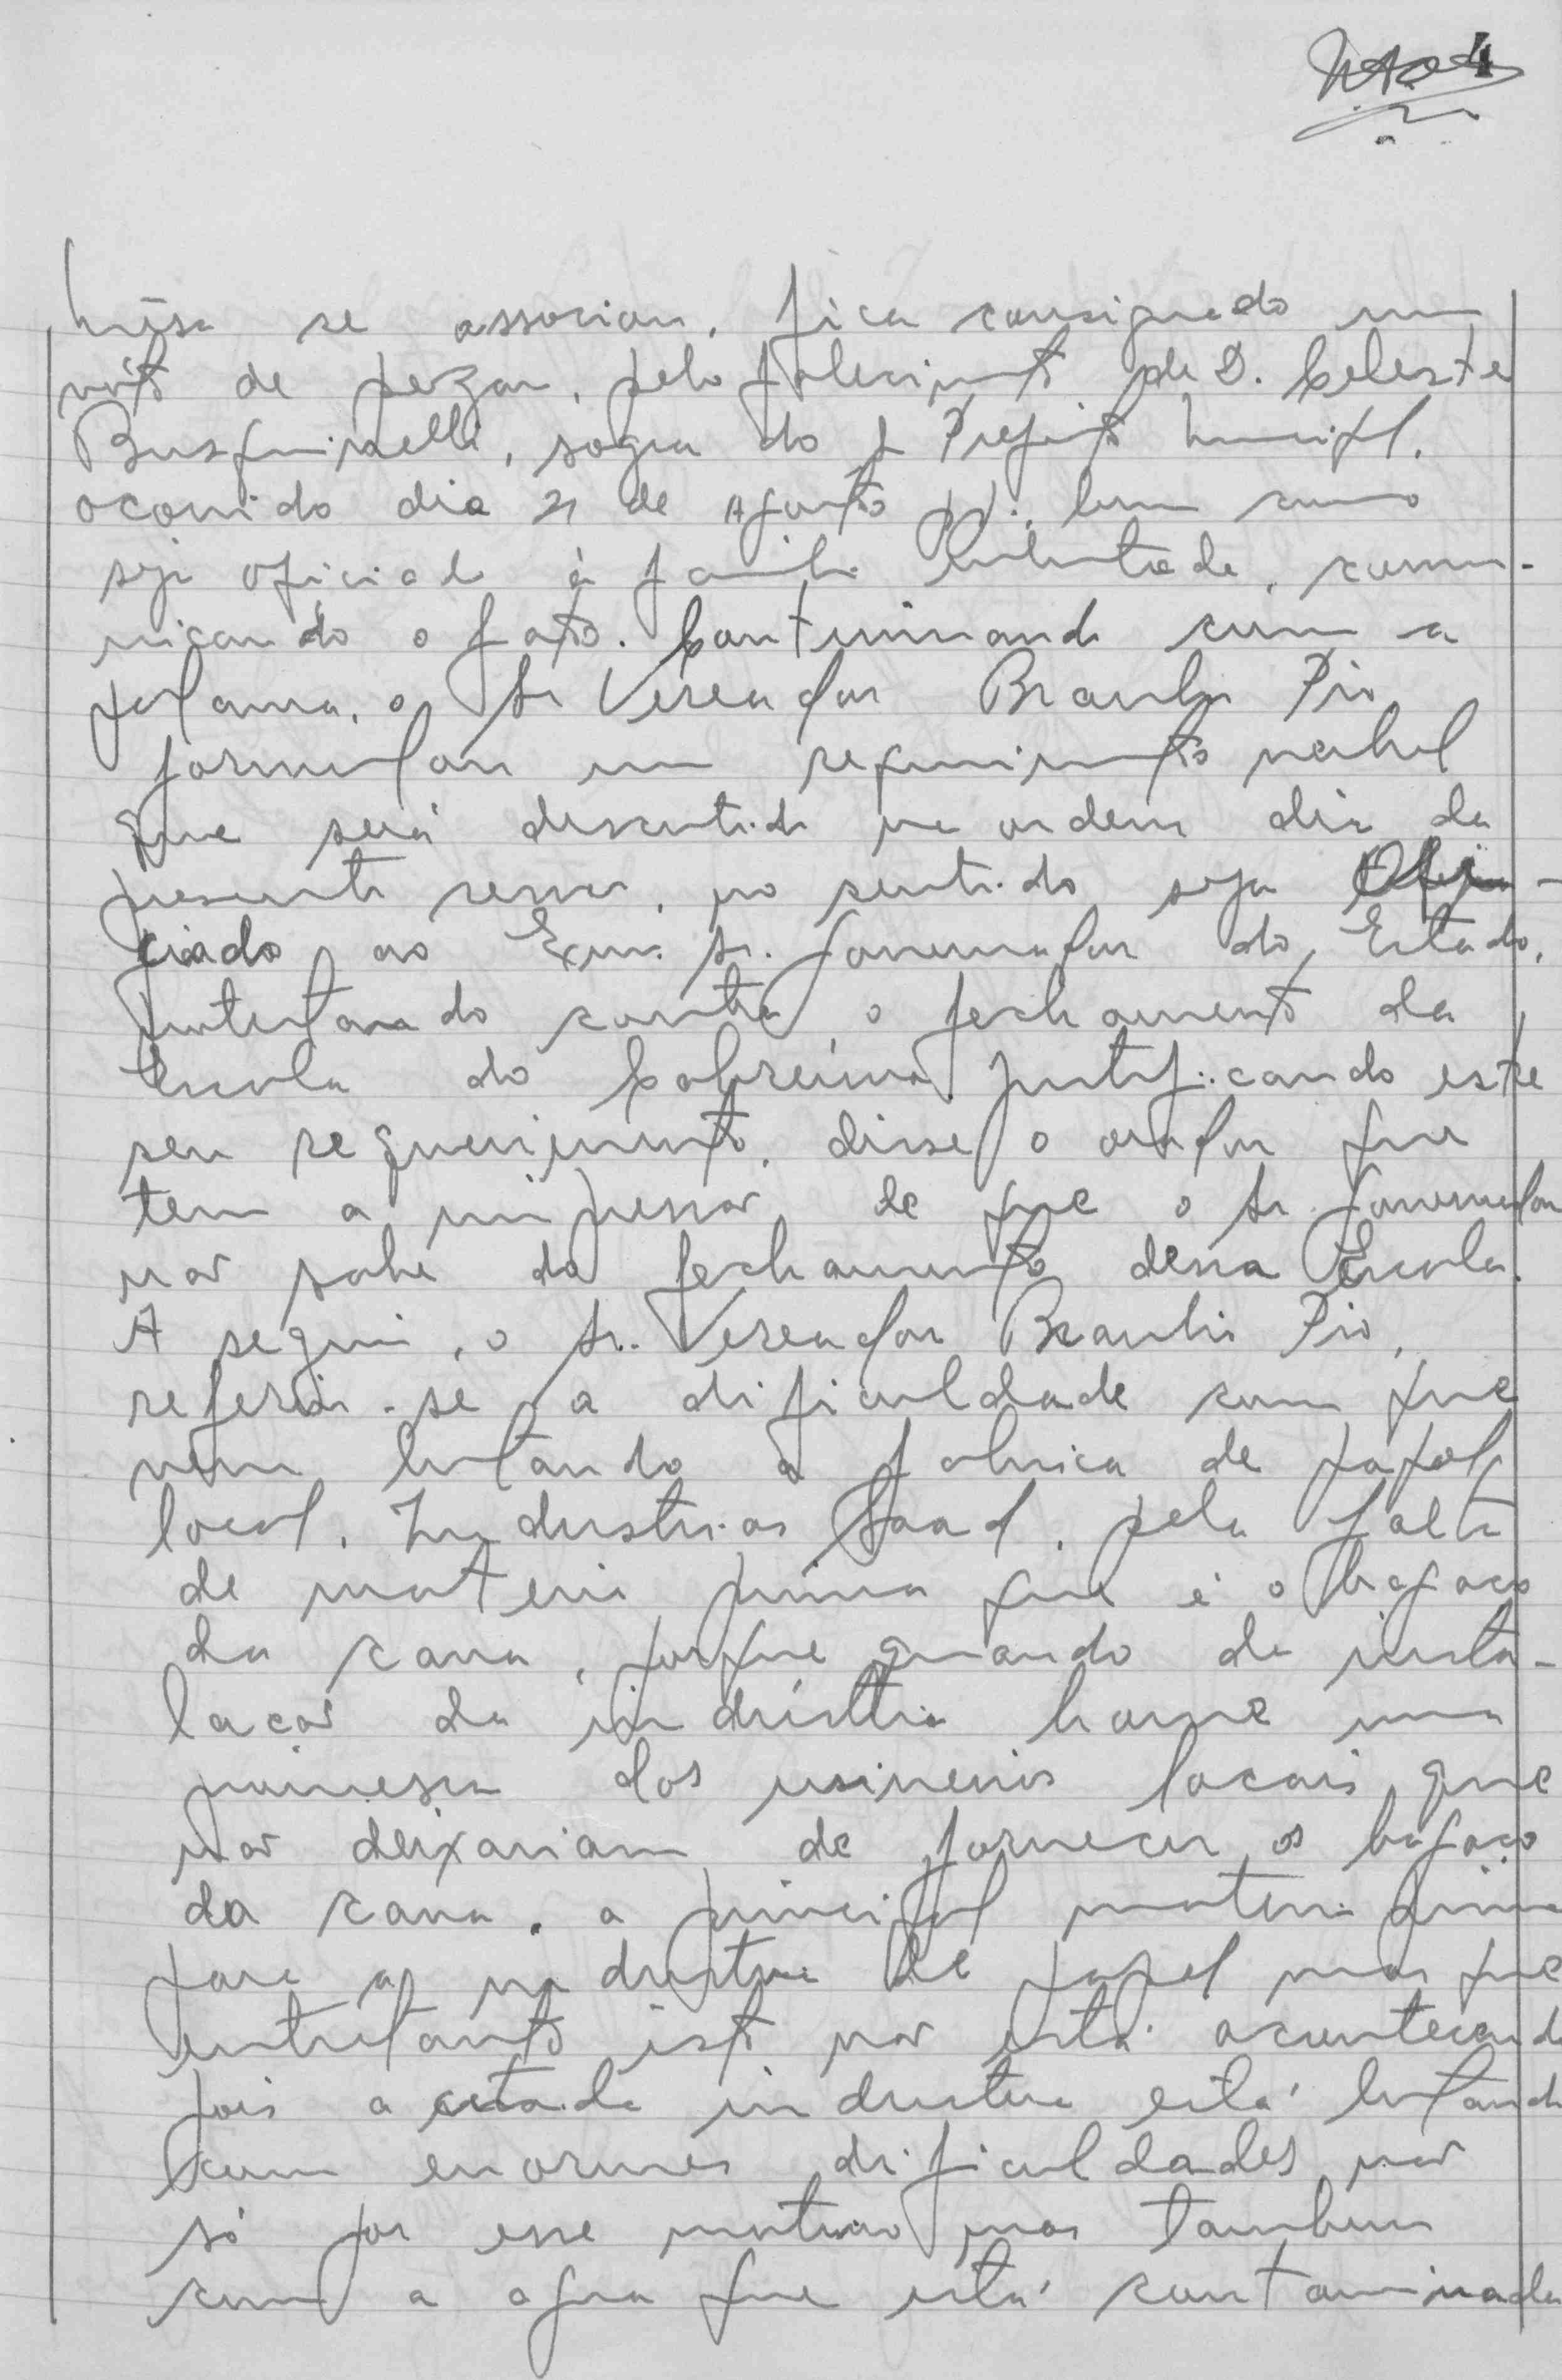 4
Mesa se associou, fica consignado um
voto de pezar, pelo falecimento de D. Celeste
sogra do Sr Prefeito Municipal,
ocorrido dia 21 de Agosto pp. bem como
seja oficiado à familia enlutada, comu-
nicando o fato. Continuando com a
palavra, o Sr Vereador Braulio Pio,
formulou um requerimento verbal
que será discutido na ordem dia da
presente sessão, no sentido seja Ofi-
ciado ao Exmo. Sr. Governador do Estado,
protestando contra o fechamento da
Escola do justificando este
seu requerimento, disse o orador que
tem a impressão de que o Sr. Governador
não sabe do fechamento dessa Escola.
A seguir, o Sr. Vereador Braulio Pio,
referiu-se a dificuldade com que
vem lutando a fabrica de papel
local, Industrias Saad, pela falta
de materia prima que é o bagaço
da cana, porque quando da insta-
lação da indústria houve uma
promessa dos usineiros locais, que
não deixariam de fornecer os bagaço
da cana, a principal materia prima
para a industria de papel mas que
entretanto isto não está acontecendo
pois a citada industria está lutando
com enormes dificuldades, não
só por esse motivo mas tambem
com a agua que está contaminada